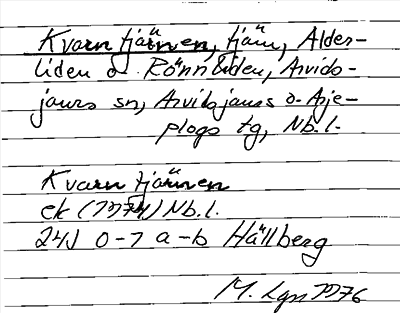 Kvarntjärnen, tjärn, Alder-
liden o. Rönnliden, Arvids-
jaurs sn, Arvidsjaurs o Arje-
plogs tg, Nb.l.
Kvarntjärnen
ek (1974) Nb.l.
24J 0-1 a-b Hällberg
M. Lgn 1976